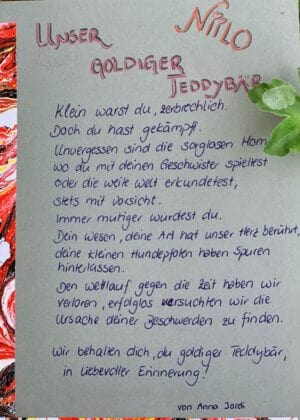 NIILO
UNSER
GOLDIGER
TEDDYBÄR
Klein warst du, zerbrechlich.
Doch du hast gekämpft.
Unvergessen sind die sorglosen
wo du mit deinen Geschwister spieltest
oder die weite Welt erkundetest,
stets mit Vorsicht.
Immer mutiger wurdest du.
Dein Wesen, deine Art hat unser Herz berührt,
deine kleinen Hundepfoten haben Spuren
hinterlassen.
Den Wettlauf gegen die Zeit haben wir
verloren, erfolglos versuchten wir die
Ursache deiner Beschwerden zu finden.
Wir behalten dich, du goldiger Teddybär,
in liebevoller Erinnerung!
von Anna Jordi